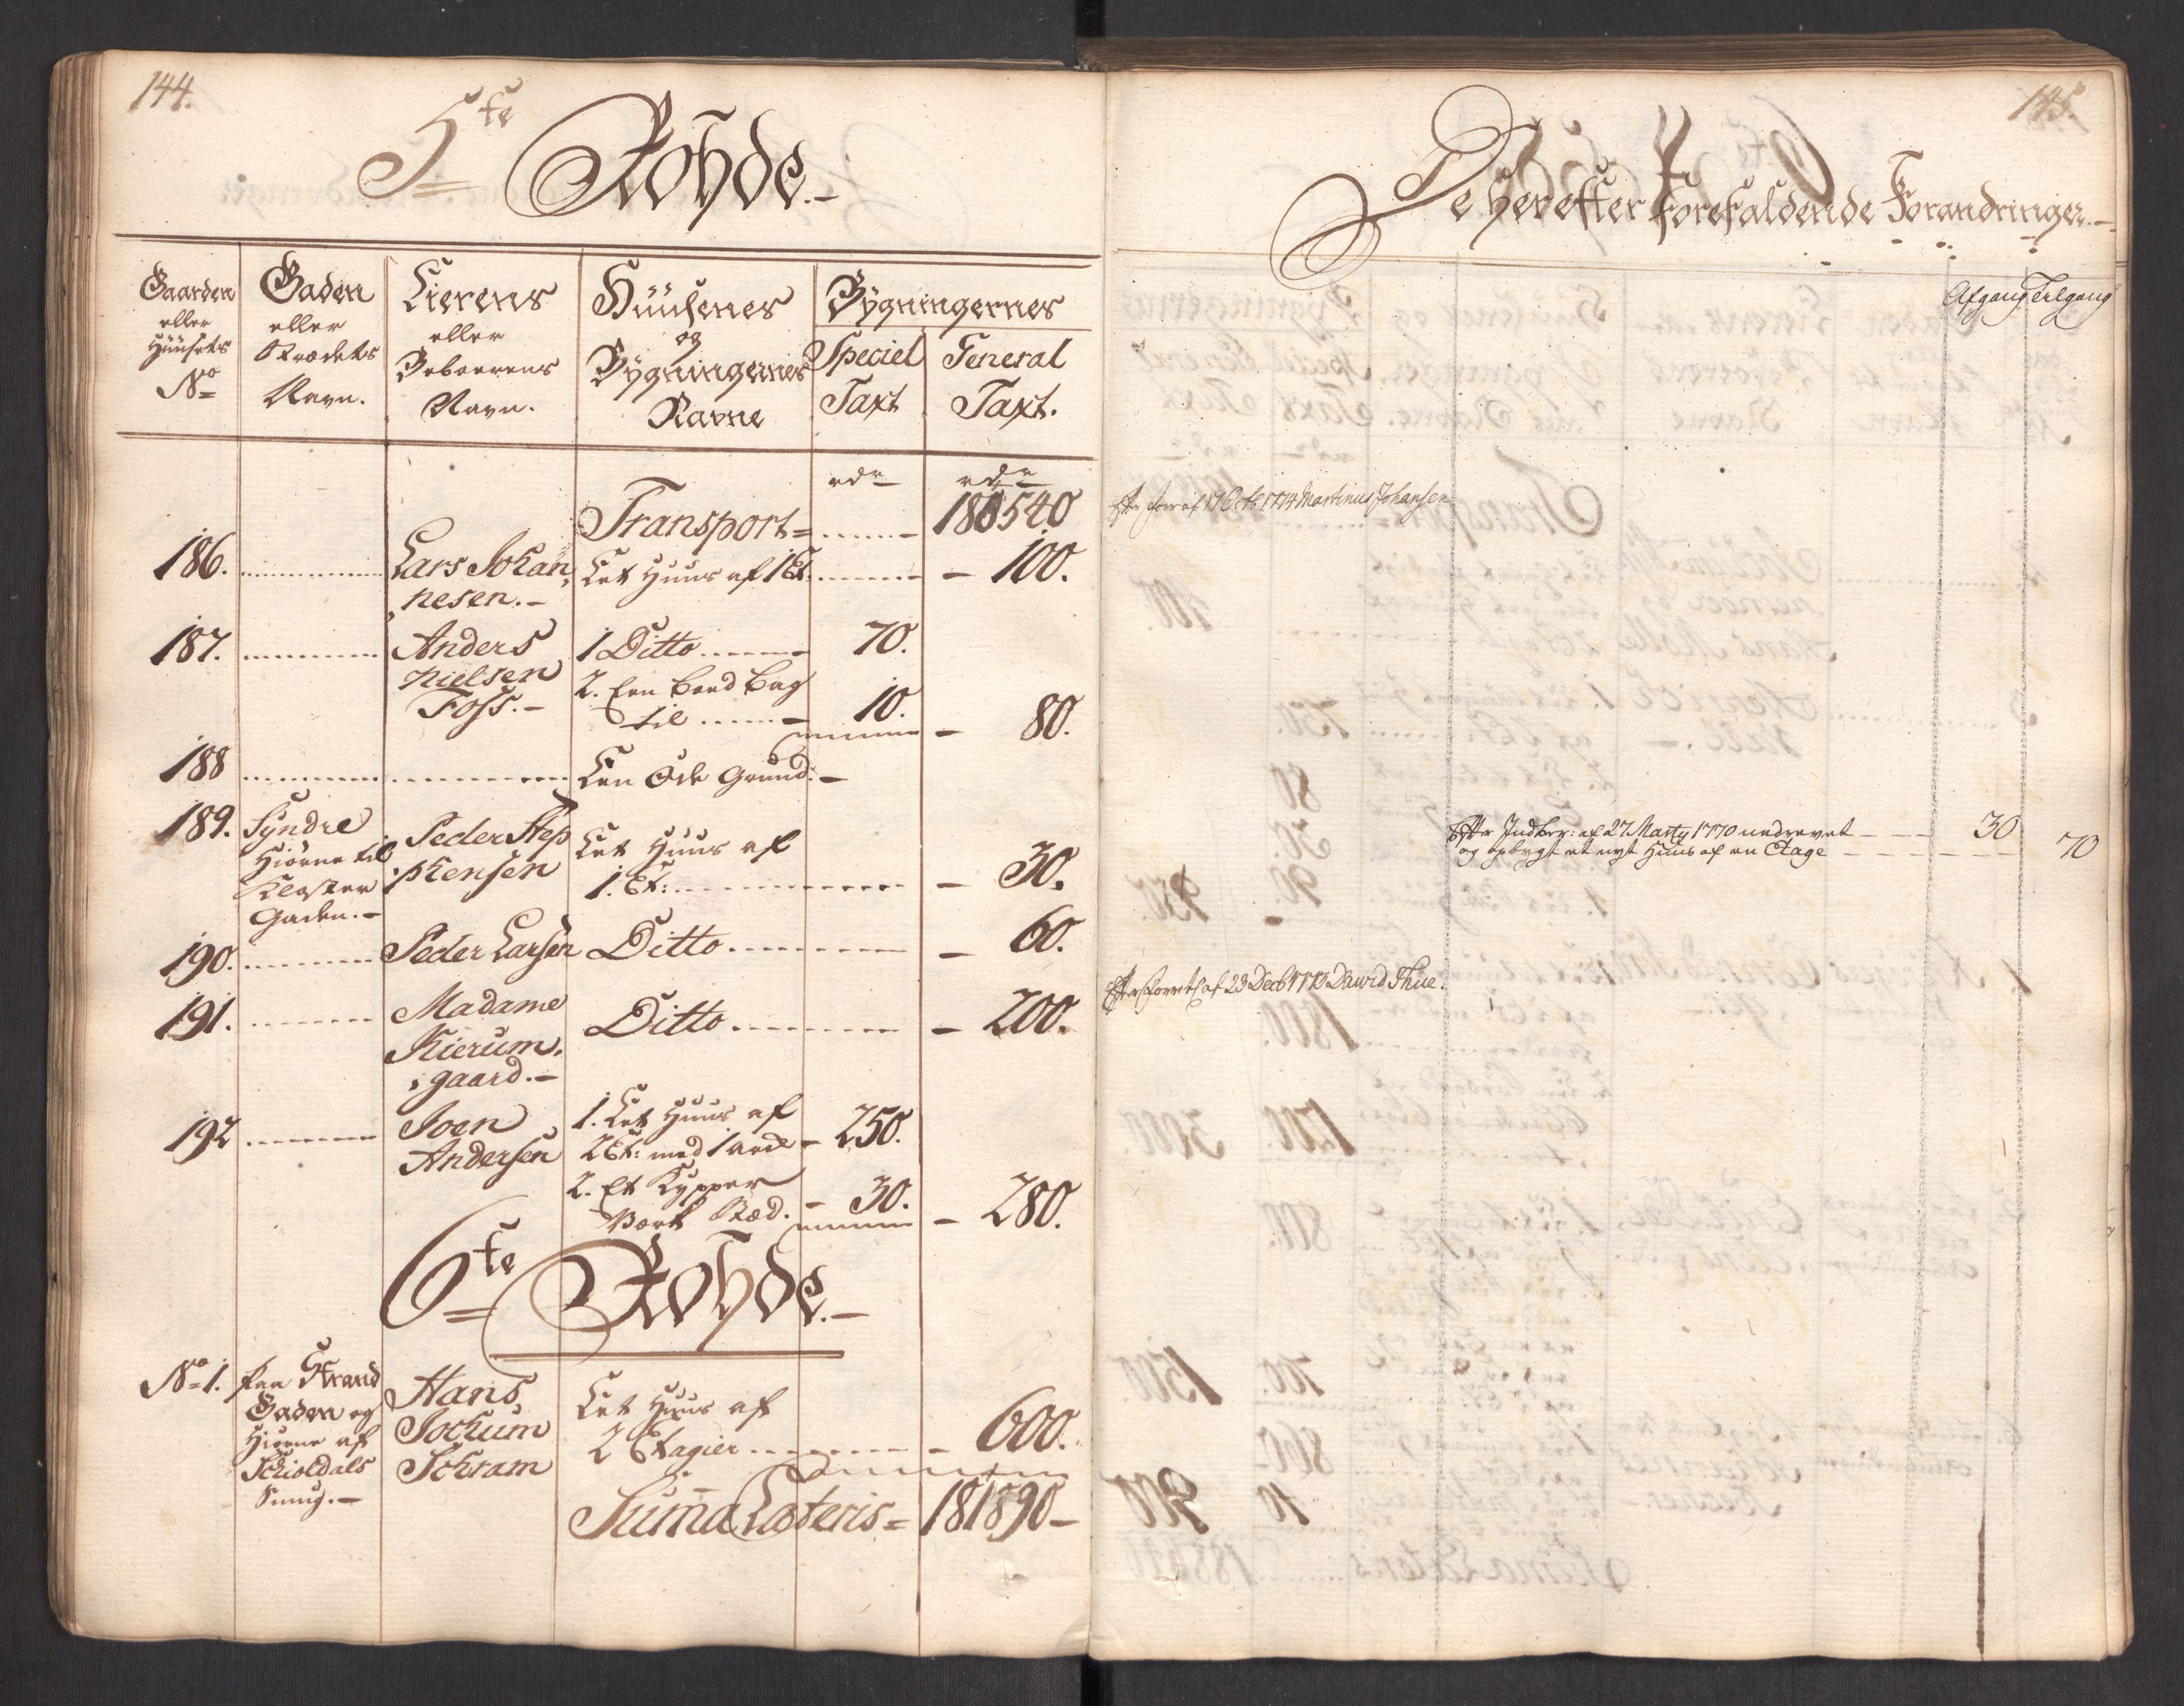 144.
5te Rohde.
Gaarden eller Huusets No
Gaden eller Strædets Navn.
Eierens eller Beboerens Navn.
Huusenes og Bygningernes Navne
Bygningernes
Speciel Taxt
General Taxt.
rdr rdr
Transport = 180540
186. Lars Johan Eet Huus af 1 Et: 100.
nesen.
187. Anders 1 Ditto 70.
Nielsen 2. Een Bood bag
Foss. til 10. 80.
188 Een Øde Grund.
189. Syndre Peder Step Eet Huus af
Hiørne til phensen 1. Et: 30.
Kloster
Gaden.
190. Peder Larsen Ditto 60.
191. Madame Ditto 200.
Kierum
gaard.
192 Joen 1. Eet Huus af
Andersen 2 Et: med 1 250.
2. Et Kypper
Sted. 30. 280.
6te Rohde.
No 1. Paa Strand Hans Eet Huus af
Gaden og Jochum 2 Etagier 600.
Hiørne af Schram
Schioldals
Smug.
Suma Lateris = 181890
145.
De Herefter Forefaldende Forandringer.
Afgang Tilgang
Eftr Forr af 17 Octb 1774 Martinus Johansen
Eftr Indber: af 27 Marty 1770 nedrevet 30
og opbygt et nyt Huus af en Etage 70
Eftr Forrets af 23 Decb 1773 Dawid Thue.